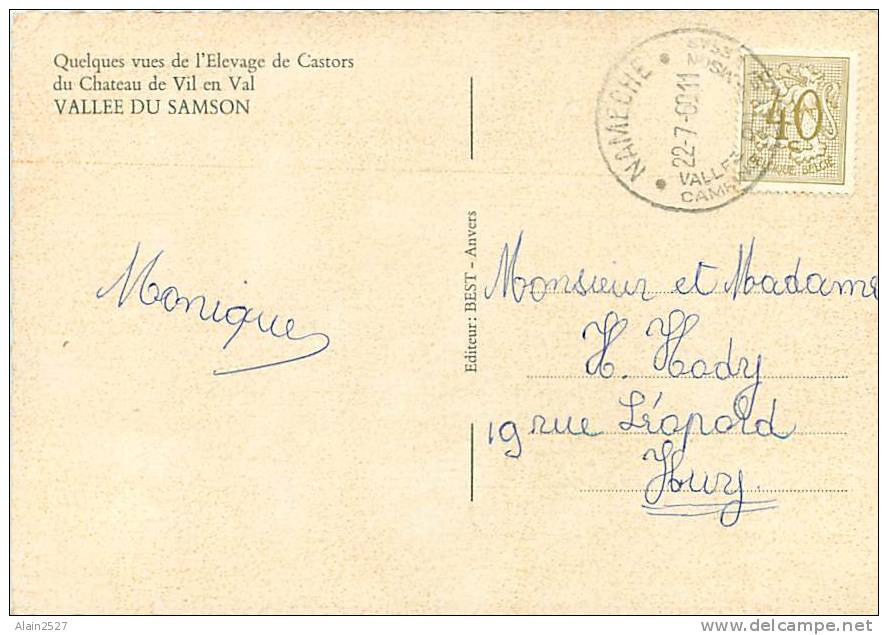 Quelques vues de l'Elevage de Castors
du Chateau de Vil en Val
VALLEE DU SAMSON
NAMECHE
22-7-6011
40
BELGIQUE BELGIE
Editeur: BEST - Anvers
Monique
Monsieur et Madame
H. Hody
19 rue Léopold
Huy.
Alain2527
delcampe.net